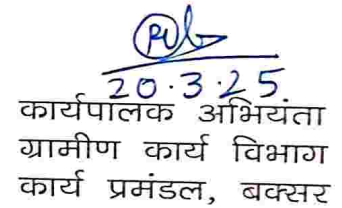 20.3.25
कार्यपालक अभियंता
ग्रामीण कार्य विभाग
कार्य प्रमंडल, बक्सर